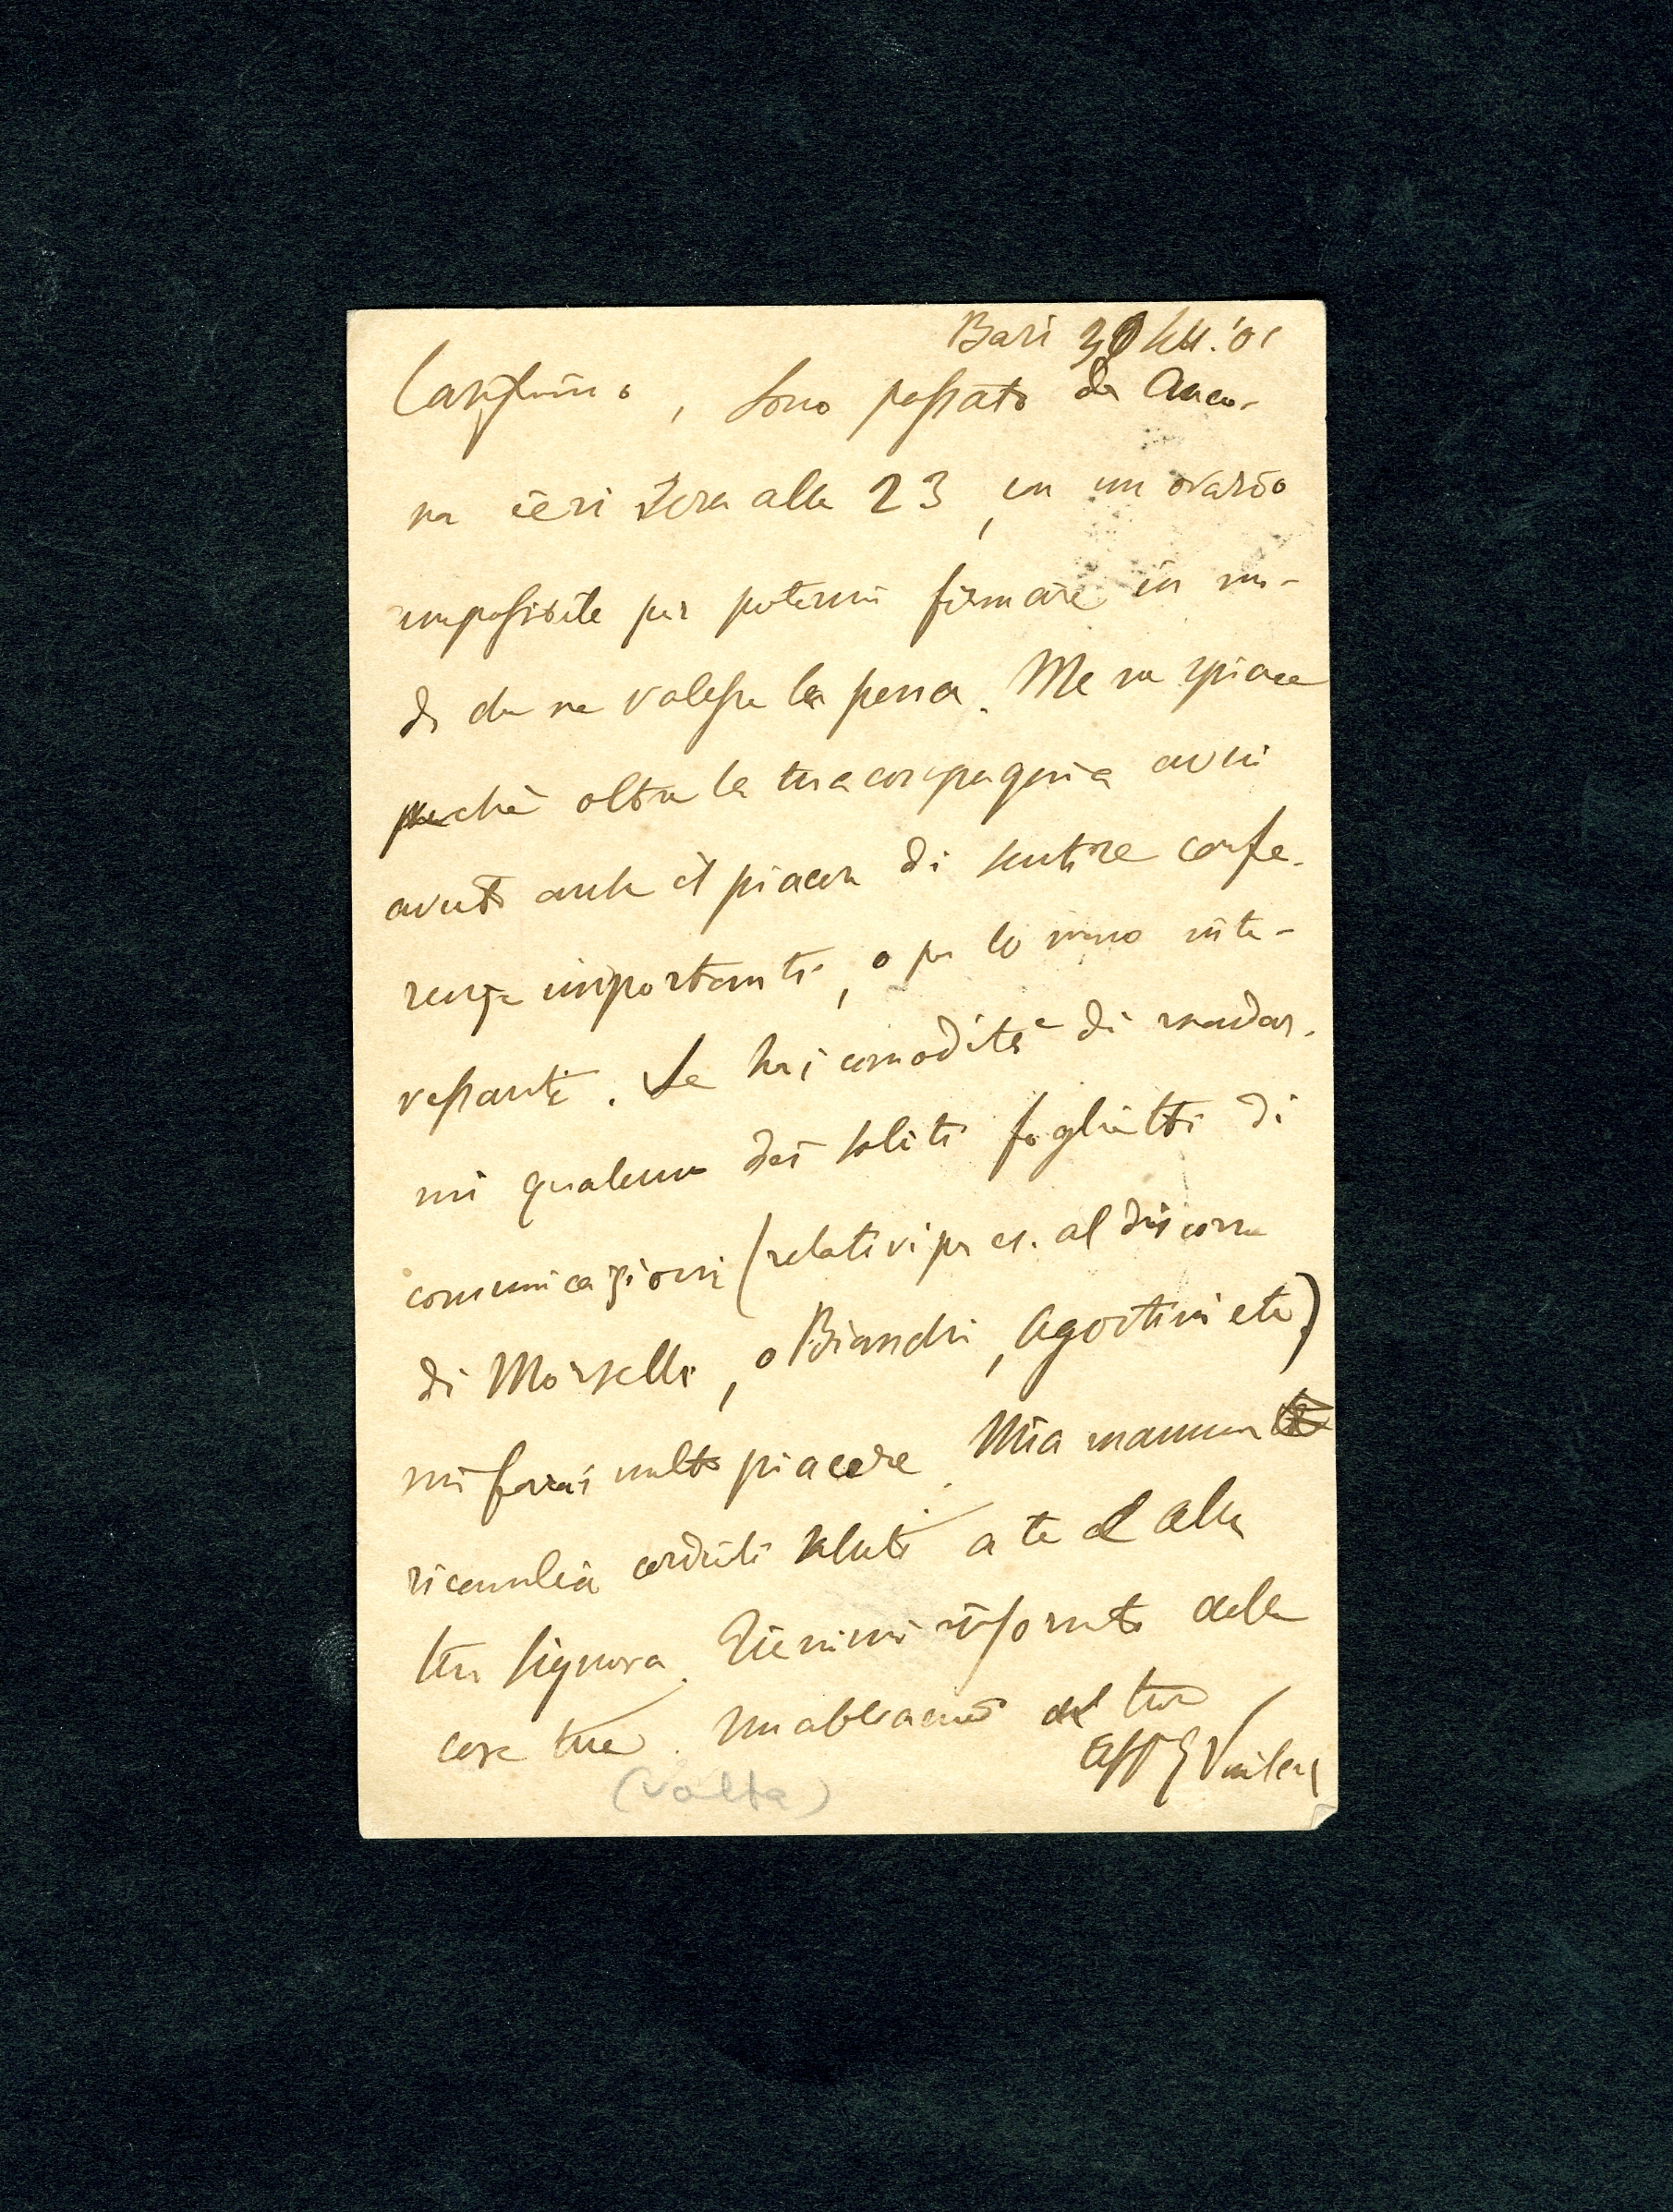 Bari 30 sett. '01
Carissimo, sono passato da Anco-
na ieri sera alle 23, in un orario
impossibile per potermi fermare in mo-
do che ne valesse la pena. Me ne spiace
perchè oltre la tua compagnia avrei
avuto anche il piacere di sentire confe-
renze importanti, o per lo meno inte-
ressanti. Se hai comodità di mandar-
mi qualcuno dei soliti foglietti di
comunicazioni (relativi per es. al discorso
di Morselli, o Bianchi, Agostini etc)
mi farai molto piacere. Mia mamma
ricambia cordiali saluti a te e alla
tua signora. Tienimi informato delle
cose tue. Un abbraccio dal tuo
aff
(volta)